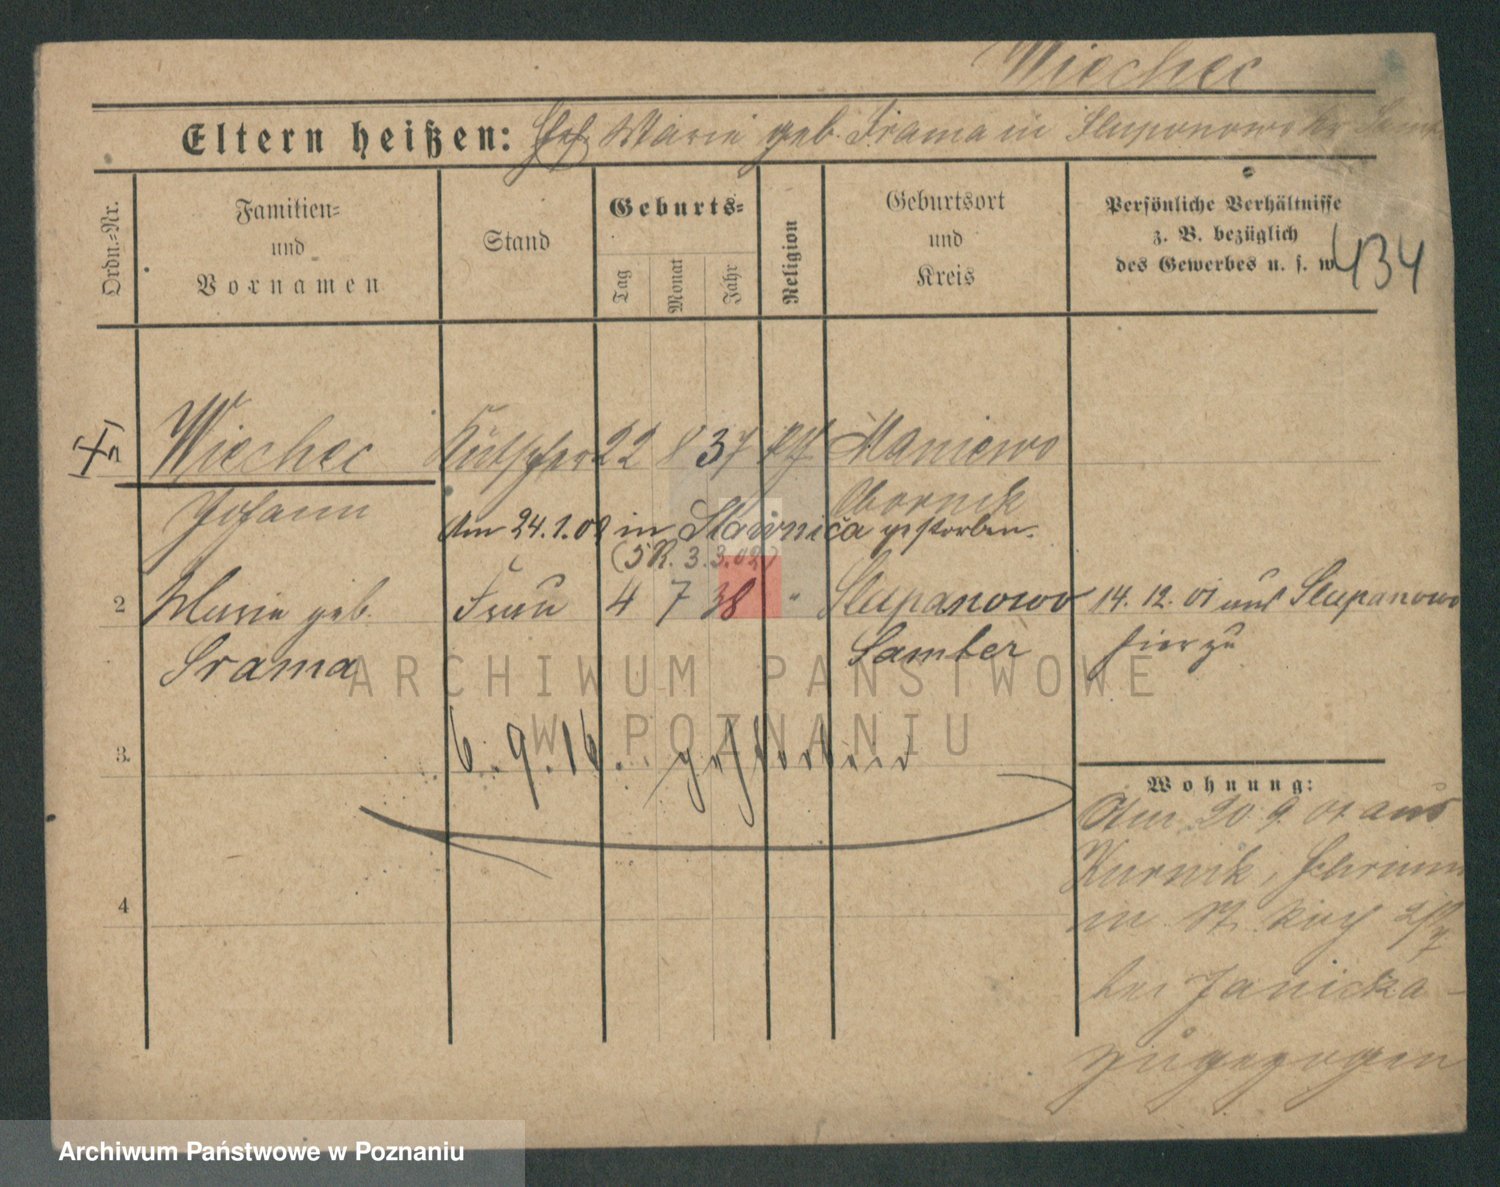 Wiechec
Eltern heißen: Marie geb. Srama in Slupanowo Kr Samt
Ordn.=Nr.
Familien=
und
Vornamen
Stand
Geburts=
Tag
Monat
Jahr
Religion
Geburtsort
und
Kreis
Persönliche Verhältnisse
z. B. bezüglich
des Gewerbes u. s. w.
434
Wiechec 22 8 37 Maniewo
Johann Obornik
Am 24.1.02 in Slavnica gestorben.
(5 R. 3.3.02)
2 Marie geb. Frau 4 7 38 " Slupanowo 14. 12. 01 aus Slupanowo
Srama Samter hierzu
ARCHIWUM PAŃSTWOWE
W POZNANIU
3. 6. 9. 16. gestorben
Wohnung:
Am 20.9.01 aus
Kurnik, Schrimm
in St.
bei Janicka
zugezogen
4
Archiwum Państwowe w Poznaniu